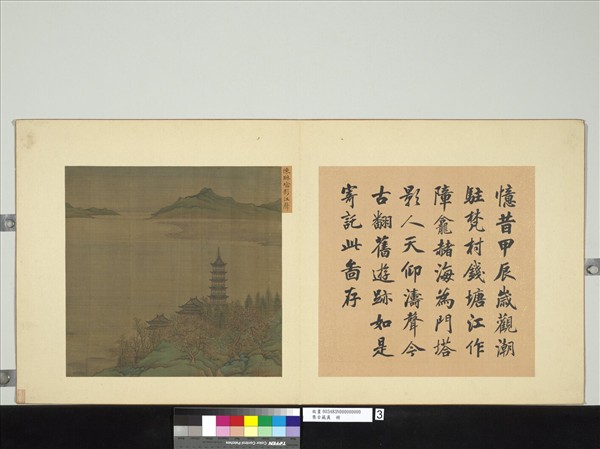 憶昔甲辰歲觀潮
駐梵村錢塘江作
障龕赭海為門塔
影人天仰濤聲今
古翻舊遊跡如是
寄託此啚存
TIFFEN Color Control Patches
3